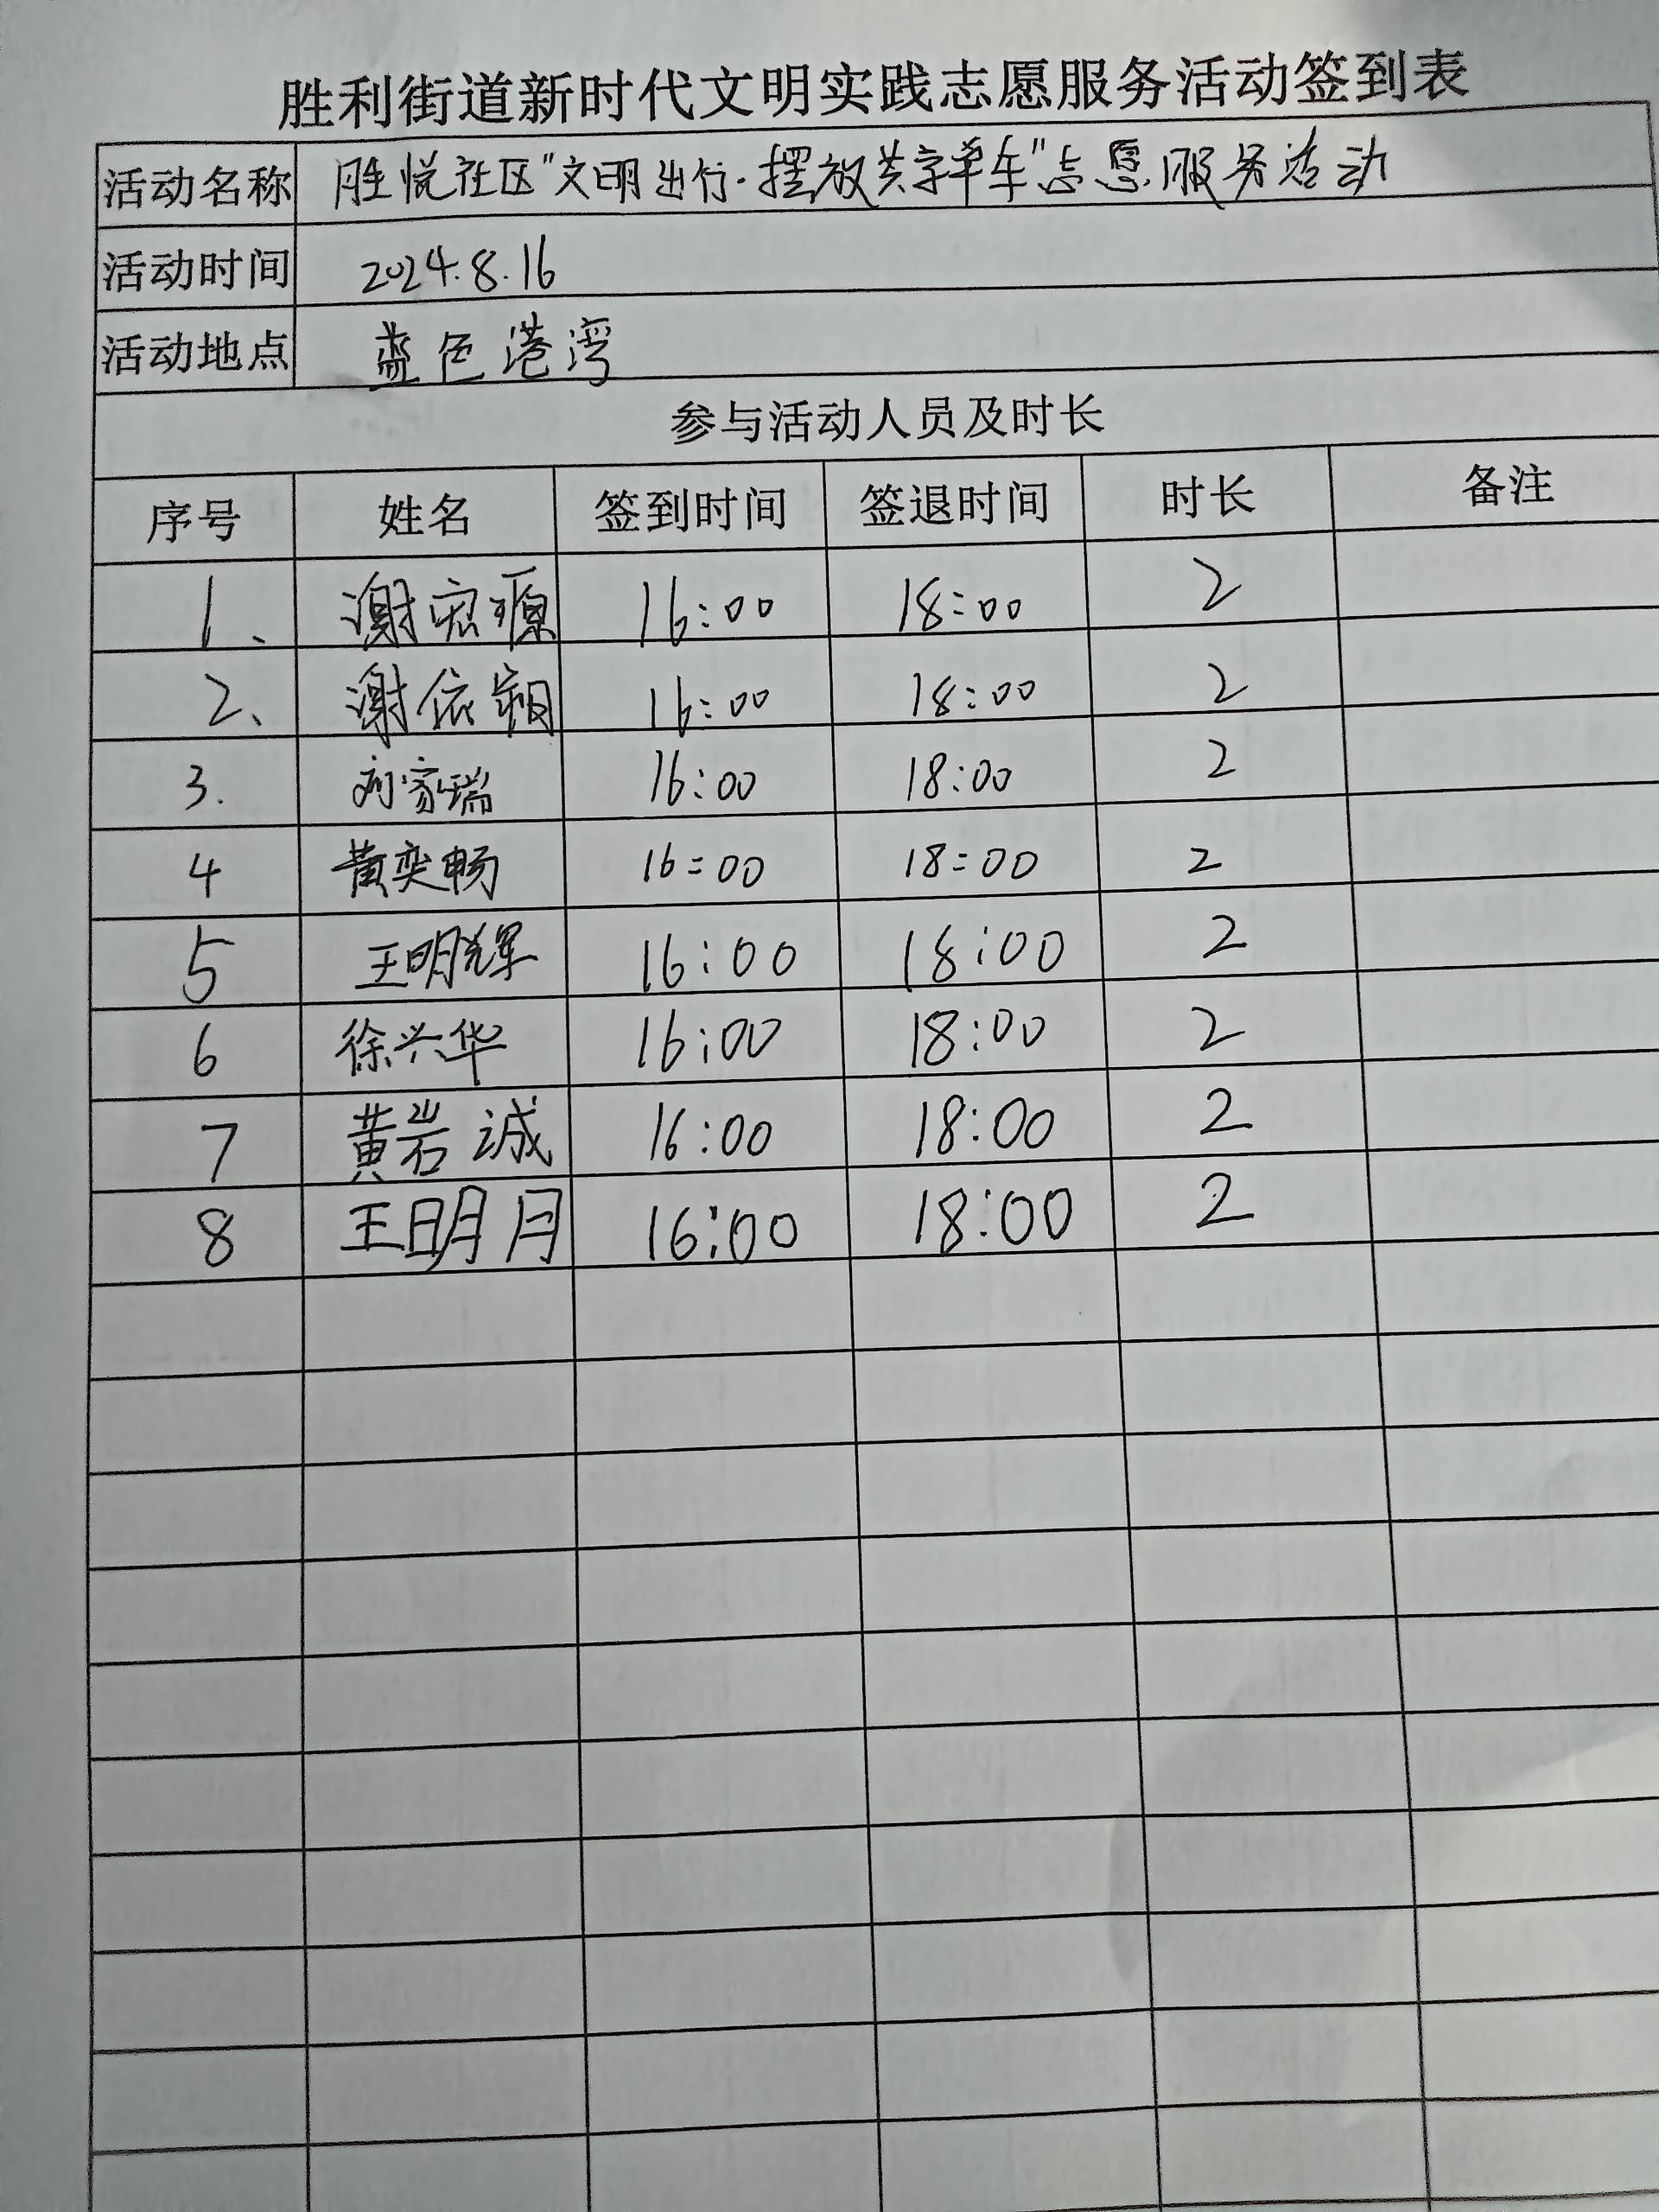 胜利街道新时代文明实践志愿服务活动签到表
活动名称 胜悦社区"文明出行·摆放共享单车"志愿服务活动
活动时间 2024.8.16
活动地点 蓝色港湾
参与活动人员及时长
序号 姓名 签到时间 签退时间 时长 备注
1、 谢宏源 16:00 18:00 2
2、 谢依 16:00 18:00 2
3. 刘家瑞 16:00 18:00 2
4 黄奕畅 16:00 18:00 2
5 王明辉 16:00 18:00 2
6 徐兴华 16:00 18:00 2
7 黄岩诚 16:00 18:00 2
8 王明月 16:00 18:00 2